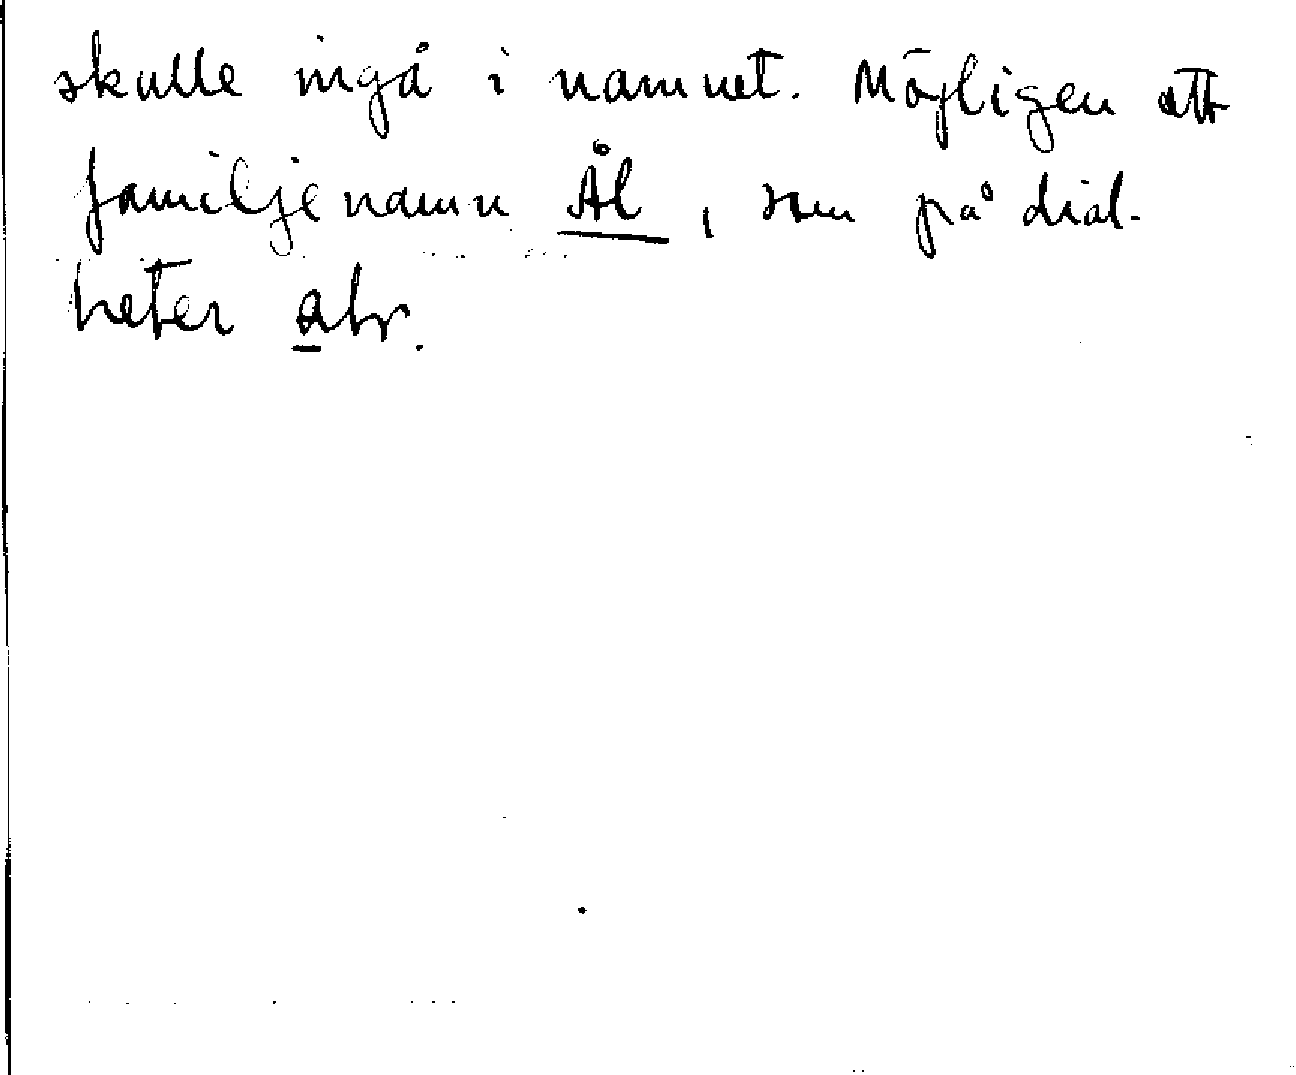 skulle ingå i namnet. Möjligen att
familjenamn Ål, som på dial.
heter alr.